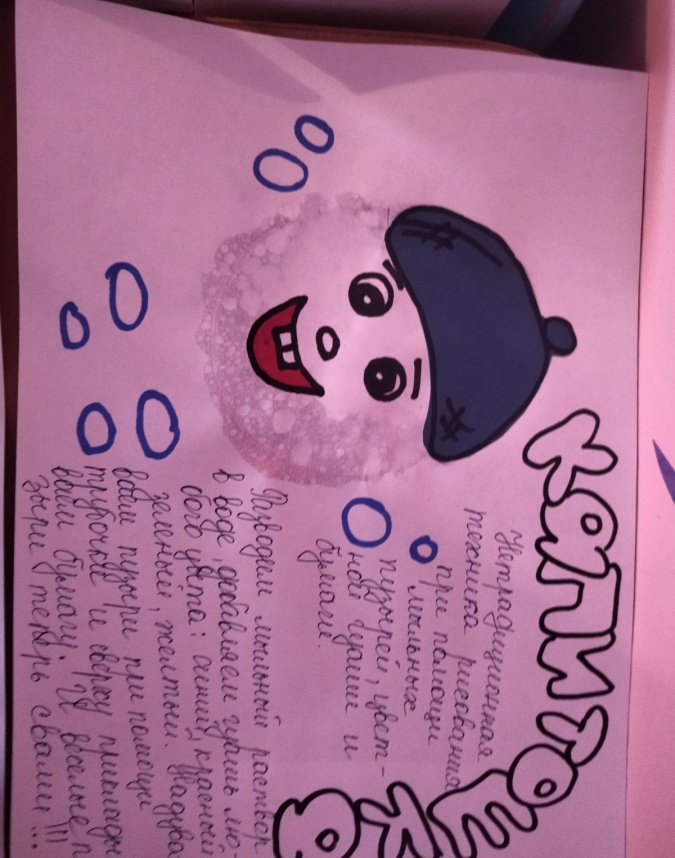 КАПИТОШКА
Нетрадиционная
техника рисования
при помощи
мыльных
пузырей, цвет-
ной гуаши и
бумаги.
Разводим мыльный раствор
в воде, добавляем гуашь лю-
бого цвета: синий, красный
зеленый, желтый. Надува
ваем пузыри при помощи
трубочки и сверху
ваем бумагу. И веселые п
зыри теперь с вами !!!